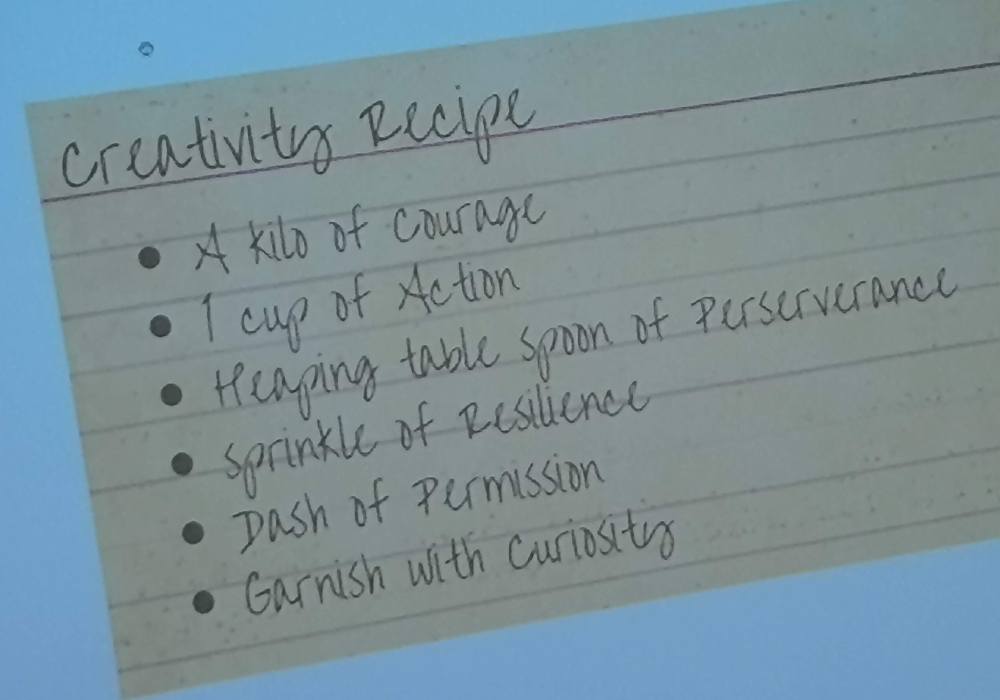 Creativity Recipe
• A kilo of Courage
• 1 cup of Action
• Heaping table spoon of Perserverance
• Sprinkle of Resilience
• Dash of Permission
• Garnish with Curiosity